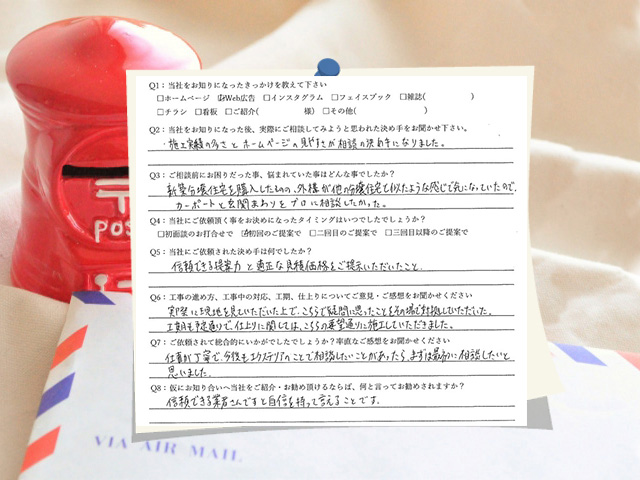 Q1：当社をお知りになったきっかけを教えて下さい
□ホームページ ☑Web広告 □インスタグラム □フェイスブック □雑誌( )
□チラシ □看板 □ご紹介( 様) □その他( )
Q2：当社をお知りになった後、実際にご相談してみようと思われた決め手をお聞かせ下さい。
・施工実績の多さとホームページの見やすさが相談の決め手になりました。
Q3：ご相談前にお困りだった事、悩まれていた事はどんな事でしたか？
新築分譲住宅を購入したものの、外構が他の分譲住宅と似たような感じで気になっていたので、
カーポートと玄関まわりをプロに相談したかった。
Q4：当社にご依頼頂く事をお決めになったタイミングはいつでしたでしょうか？
□初面談のお打合せで ☑初回のご提案で □二回目のご提案で □三回目以降のご提案で
Q5：当社にご依頼された決め手は何でしたか？
信頼できる提案力と適正な見積価格をご提示いただいたこと。
Q6：工事の進め方、工事中の対応、工期、仕上りについてご意見・ご感想をお聞かせください
実際に現地を見していただいた上で、こちらで疑問に思ったことをその場で対応していただいた。
工期も予定通りで、仕上りに関しては、こちらの要望通りに施工していただきました。
Q7：ご依頼されて総合的にいかがでしたでしょうか？率直なご感想をお聞かせください
仕事が丁寧で、今後もエクステリアのことで相談したいことがあったら、まずは最初に相談したいと
思いました。
Q8：仮にお知り合いへ当社をご紹介・お勧め頂けるならば、何と言ってお勧めされますか？
信頼できる業者さんですと自信を持って言えることです。
〒
POS
VIA AIR MAIL